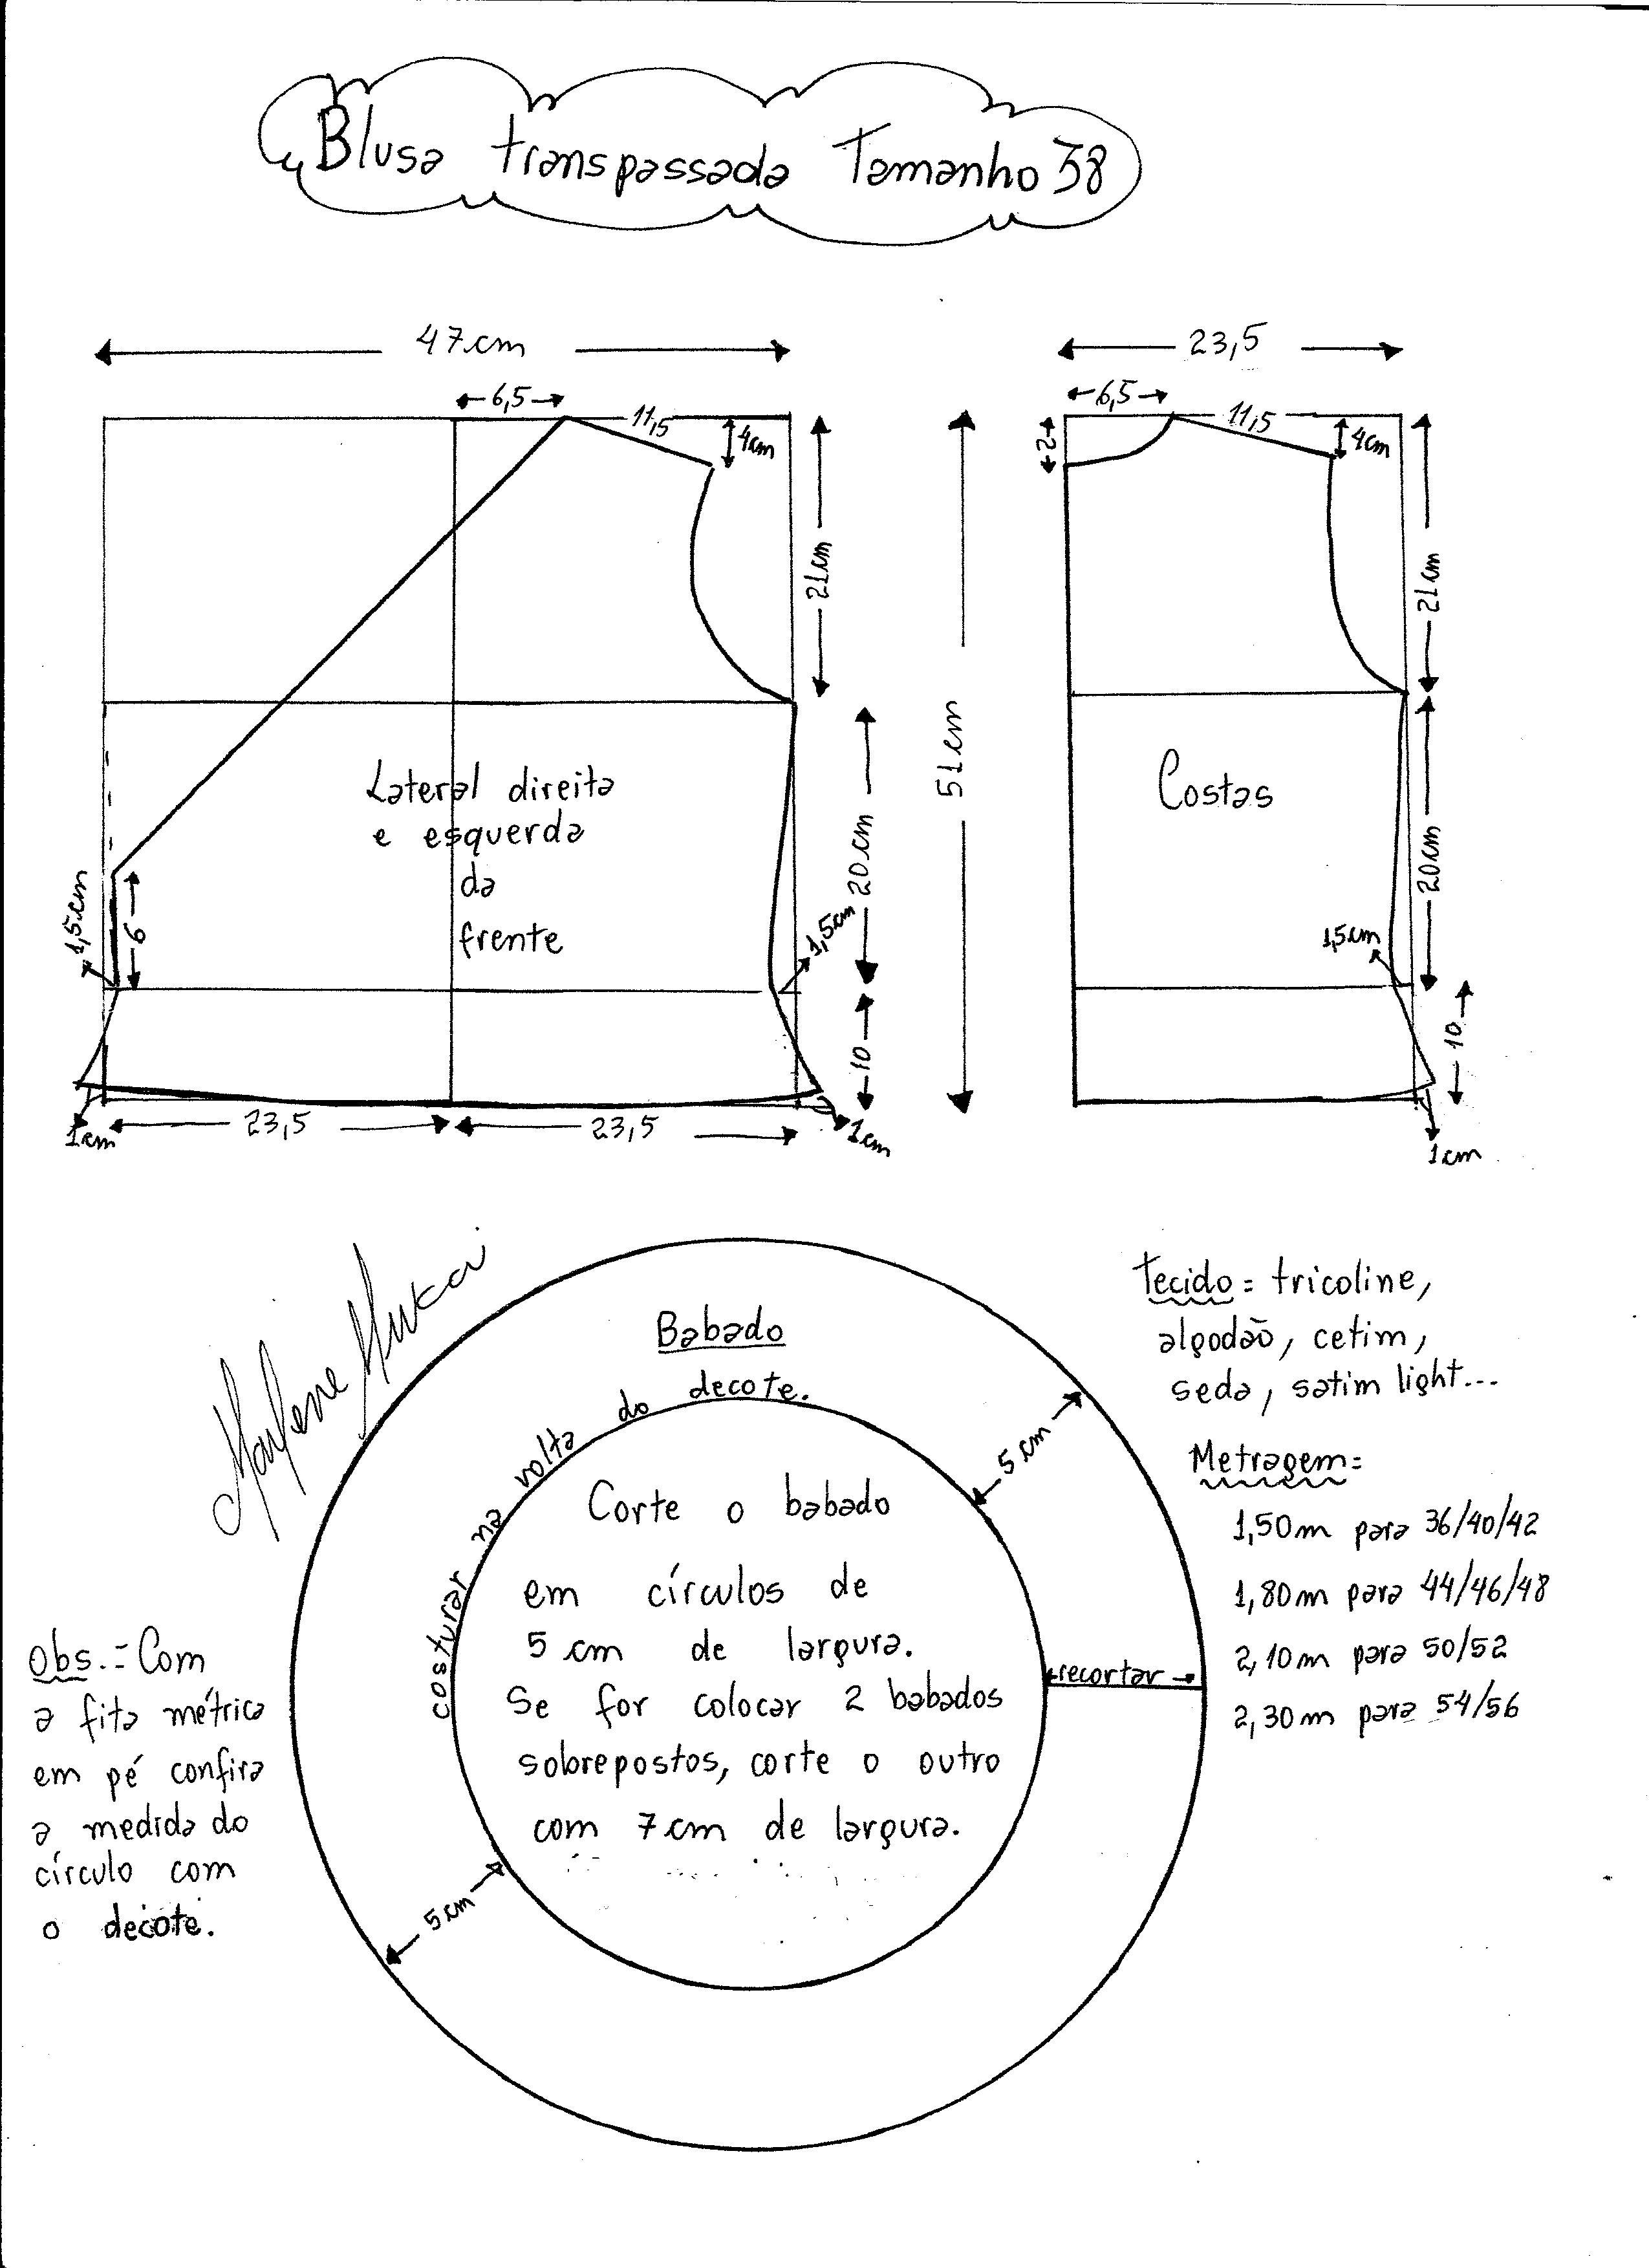 Blusa transpassada Tamanho 38
47cm
6,5
11,5
4cm
21cm
20cm
1,5cm
10
1cm
Lateral direita
e esquerda
da
frente
1,5cm
6
1cm
23,5
23,5
51cm
23,5
6,5
11,5
4cm
2
21cm
Costas
20cm
1,5cm
10
1cm
Marlene Mukai
Babado
costurar na volta do decote.
5 cm
Corte o babado
em círculos de
5 cm de largura.
Se for colocar 2 babados
sobrepostos, corte o outro
com 7 cm de largura.
recortar
5 cm
Tecido = tricoline,
algodão, cetim,
seda, satim light...
Metragem =
1,50m para 36/40/42
1,80m para 44/46/48
2,10m para 50/52
2,30m para 54/56
Obs.:= Com
a fita métrica
em pé confira
a medida do
círculo com
o decote.